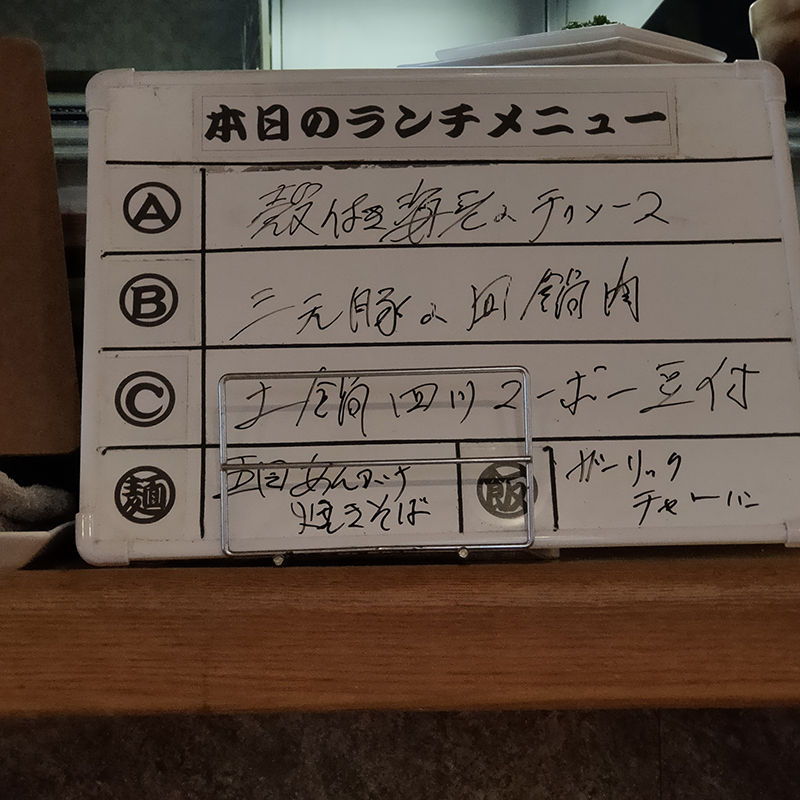 本日のランチメニュー
A 殻付き海老のチリソース
B 三元豚の回鍋肉
C 土鍋四川マーボー豆付
麺 五目あんかけ
焼きそば
飯 ガーリック
チャーハン